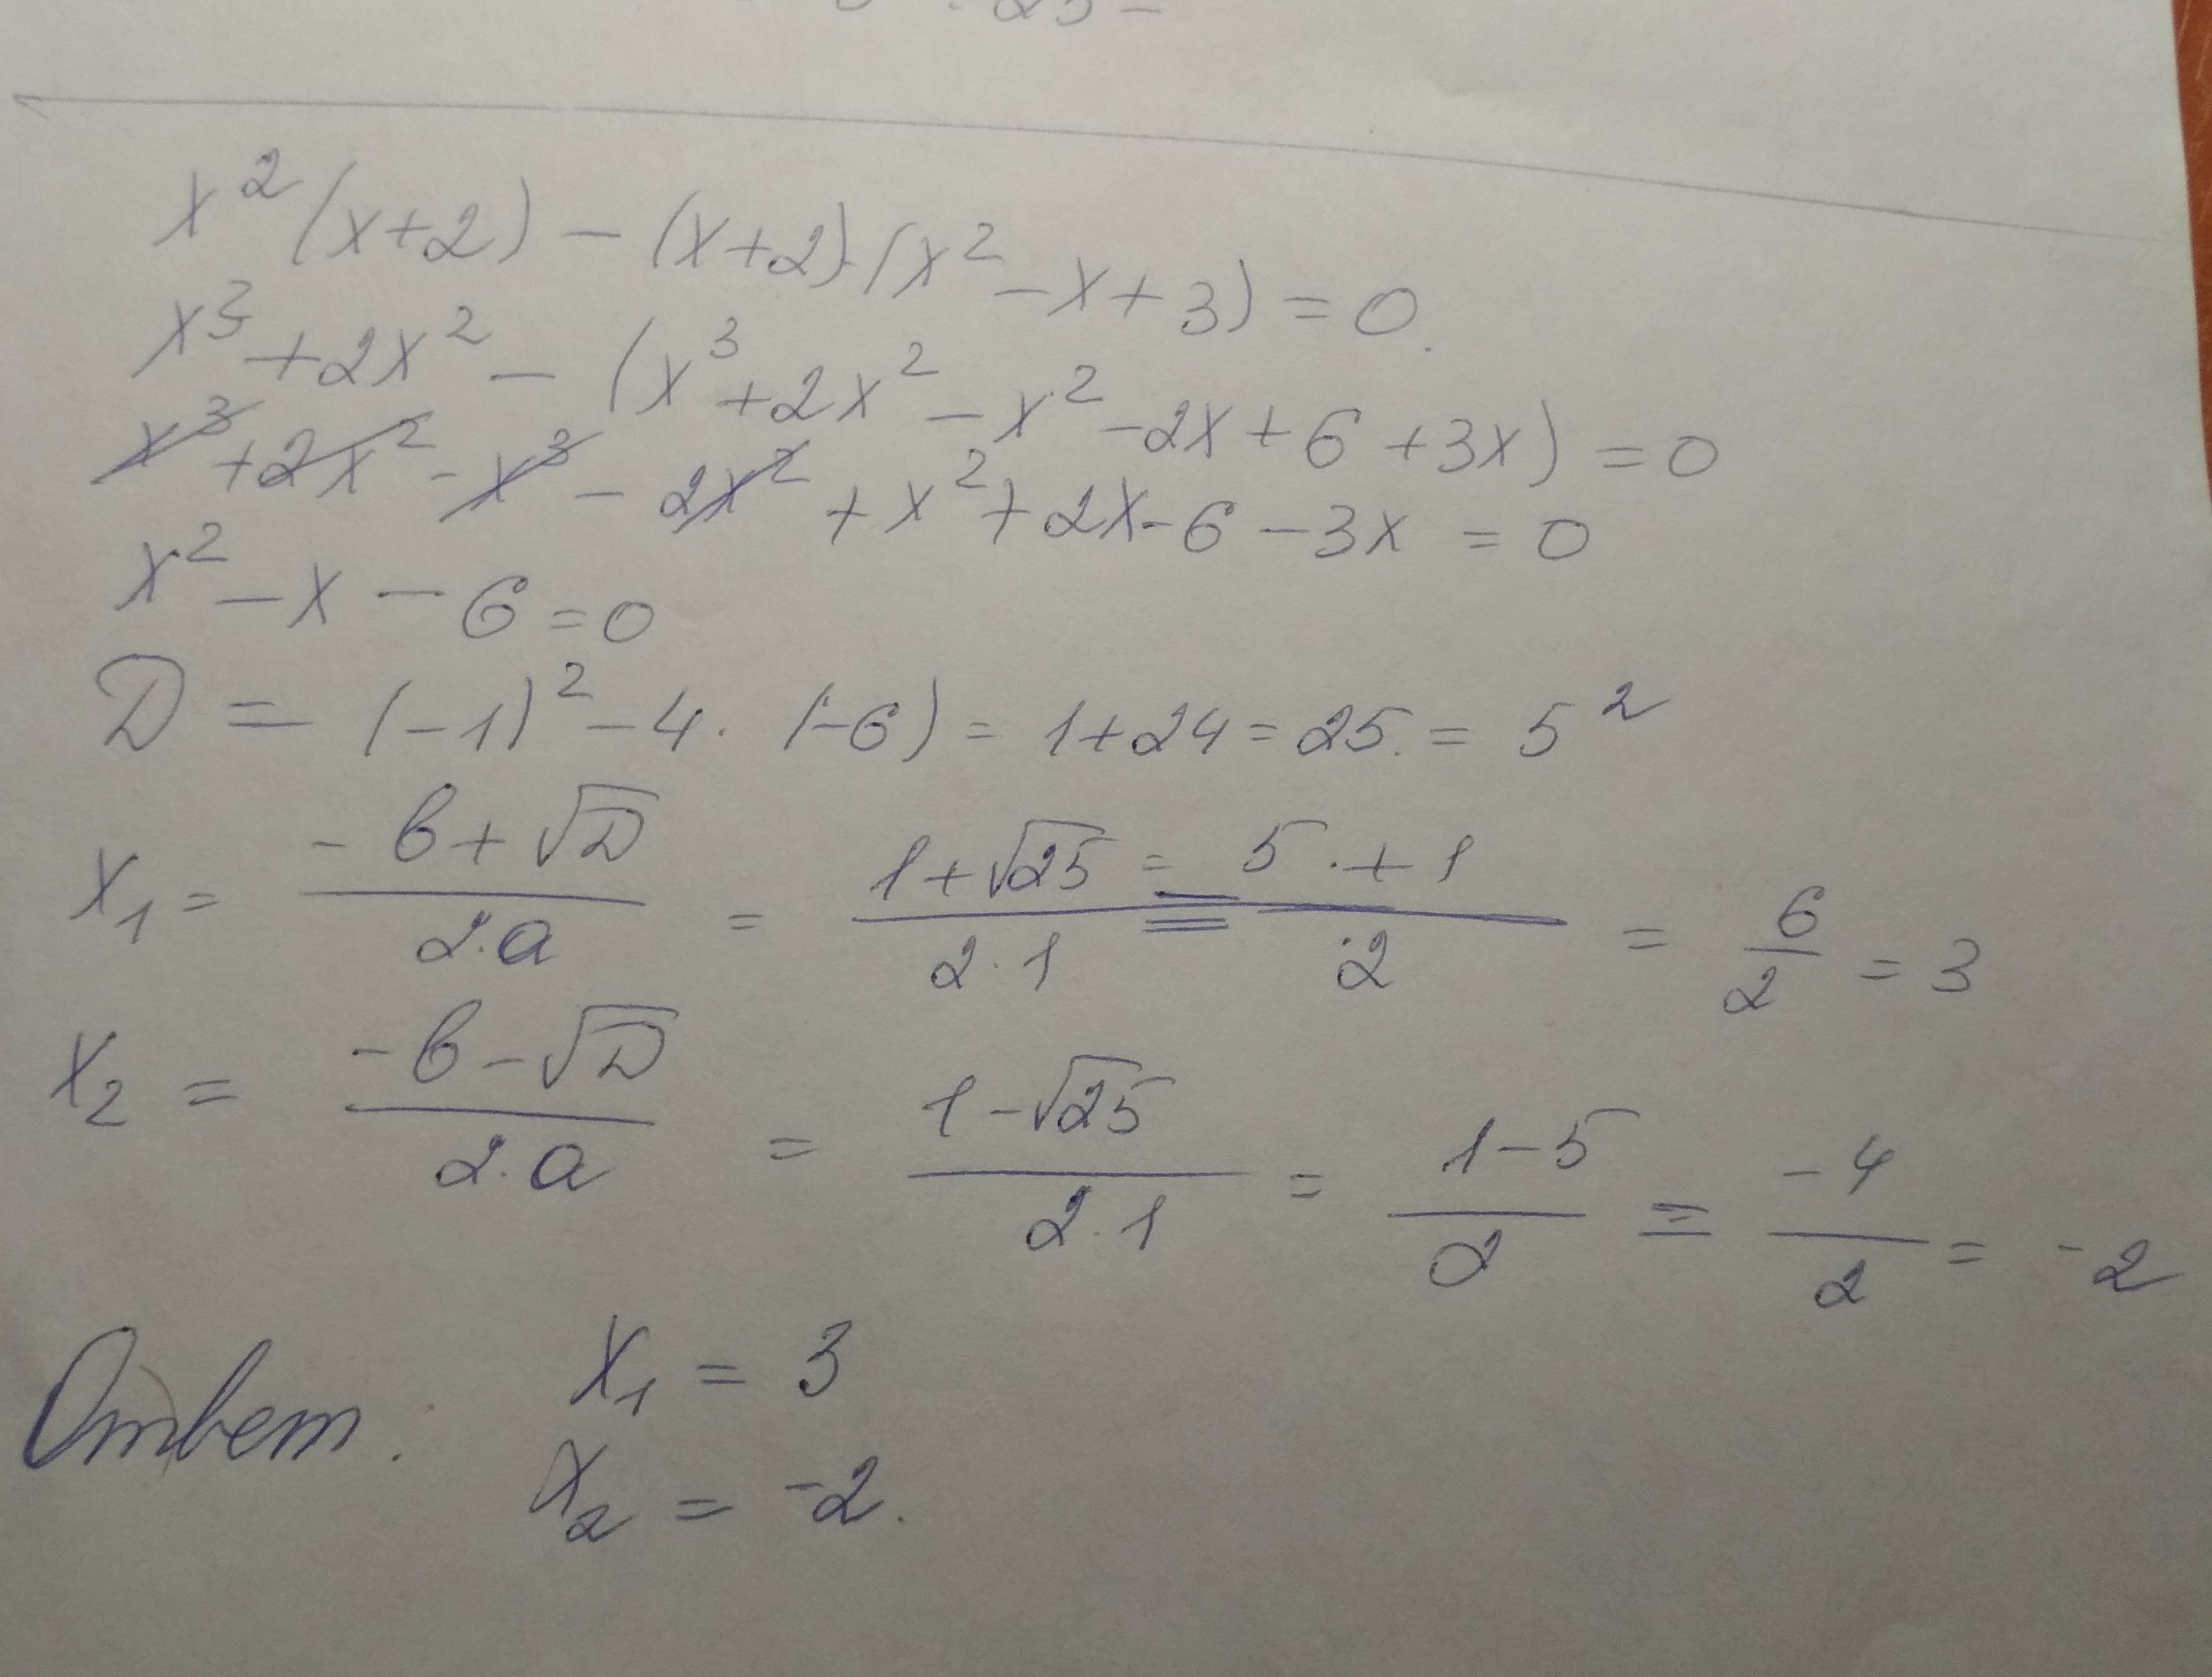 x²(x+2) - (x+2)(x² - x + 3) = 0.
x³ + 2x² - (x³ + 2x² - x² - 2x + 6 + 3x) = 0
x³ + 2x² - x³ - 2x² + x² + 2x - 6 - 3x = 0
x² - x - 6 = 0
D = (-1)² - 4 · (-6) = 1 + 24 = 25. = 5²
x₁ = (-b + √D)/(2·a) = (1 + √25)/(2·1) = (5 + 1)/2 = 6/2 = 3
x₂ = (-b - √D)/(2·a) = (1 - √25)/(2·1) = (1 - 5)/2 = -4/2 = -2
Ответ: x₁ = 3
x₂ = -2.